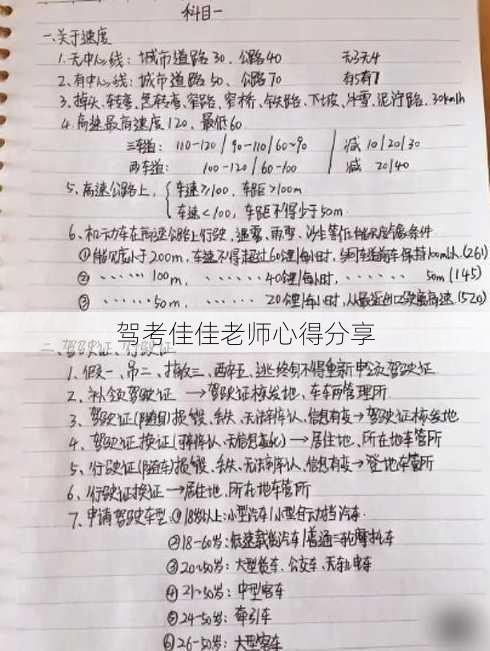 科目一
一、关于速度
1、无中心线:城市道路30、公路40 无3无4
2、有中心线:城市道路50、公路70 有5有7
3、掉头、转弯、急转弯、窄路、窄桥、铁路、下坡、冰雪、泥泞路、30km/h
4、高速最高速度120、最低60
三车道:110-120/90-110/60~90 减10/20/30
两车道:100-120/60-100 减20/40
5、高速公路上,车速≥100、车距≥100m
车速<100,车距不得少于50m
6、机动车在高速公路上行驶,遇雾、雨、雪、沙尘等低能见度气象条件
①能见度小于200m,车速不得超过60公里/每小时,与同车道前车保持100m以上(261)
② …… 100m, …… 40公里/每小时, …… 50m(145)
③ …… 50m, …… 20公里/每小时,从最近出口驶离高速(520)
驾考佳佳老师心得分享
二、驾驶证、行驶证
1、假一、吊二、撤三、醉五、逃终身不得重新申领驾驶证
2、补领驾驶证→驾驶证核发地、车车管理所
3、驾驶证(随身)损毁、丢失、无法辨认、信息有变→驾驶证核发地
4、驾驶证换证→居住地、所在地车管所
5、行驶证(随车)损毁、丢失、无法辨认、信息有变→登记地车管所
6、行驶证换证→居住地、所在地车管所
7、申请驾驶车型:①18岁以上:小型汽车/小型自动挡汽车
②18-60岁:低速载货汽车/普通三轮摩托车
③20~50岁:大型货车、公交车、无轨电车
④21~50岁:中型客车
⑤24-50岁:牵引车
⑥26-50岁:大型客车